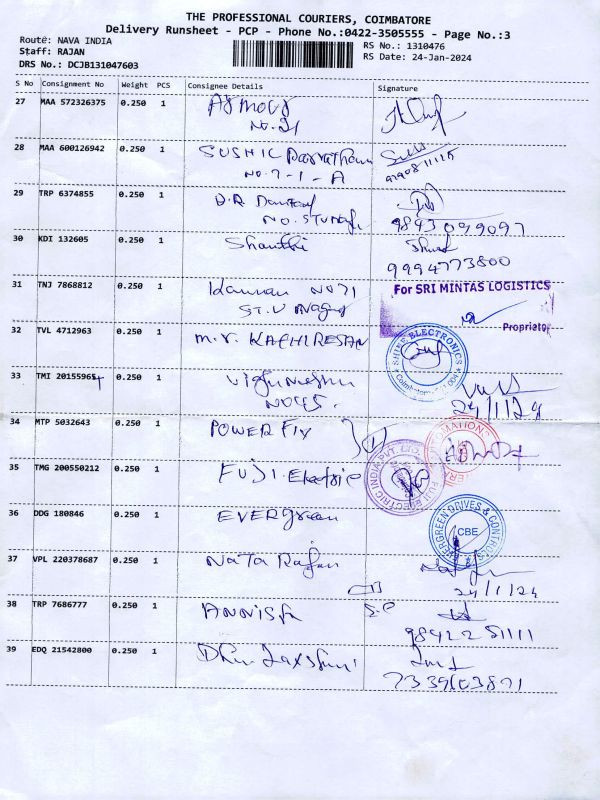 THE PROFESSIONAL COURIERS, COIMBATORE
Delivery Runsheet - PCP - Phone No.:0422-3505555 - Page No.:3
Route: NAVA INDIA
RS No.: 1310476
Staff: RAJAN
RS Date: 24-Jan-2024
DRS No.: DCJB131047603
S No Consignment No Weight PCS Consignee Details Signature
27 MAA 572326375 0.250 1
No. 21
28 MAA 600126942 0.250 1 SUSHIL
No. 7-1-A
29 TRP 6374855 0.250 1 D.R.
NO.
9843099097
30 KDI 132605 0.250 1 Shanthi
9994773800
31 TNJ 7868812 0.250 1 Kannan No 71
ST.V Nagar
For SRI MINTAS LOGISTICS
Proprietor
32 TVL 4712963 0.250 1 M.V. KATHIRESAN
ELECTRONICS
33 TMI 20155965 0.250 1
No 45.
24/1/24
34 MTP 5032643 0.250 1 POWER Fly
AUTOMATIONS
35 TMG 200550212 0.250 1 FUJI Electric
FUJI ELECTRIC INDIA PVT. LTD.
36 DDG 180846 0.250 1 EVERgreen
EVERGREEN DRIVES & CONTROLS
CBE
37 VPL 220378687 0.250 1 NaTa Rajan
24/1/24
38 TRP 7686777 0.250 1
98422 51111
39 EDQ 21542800 0.250 1
7339103871